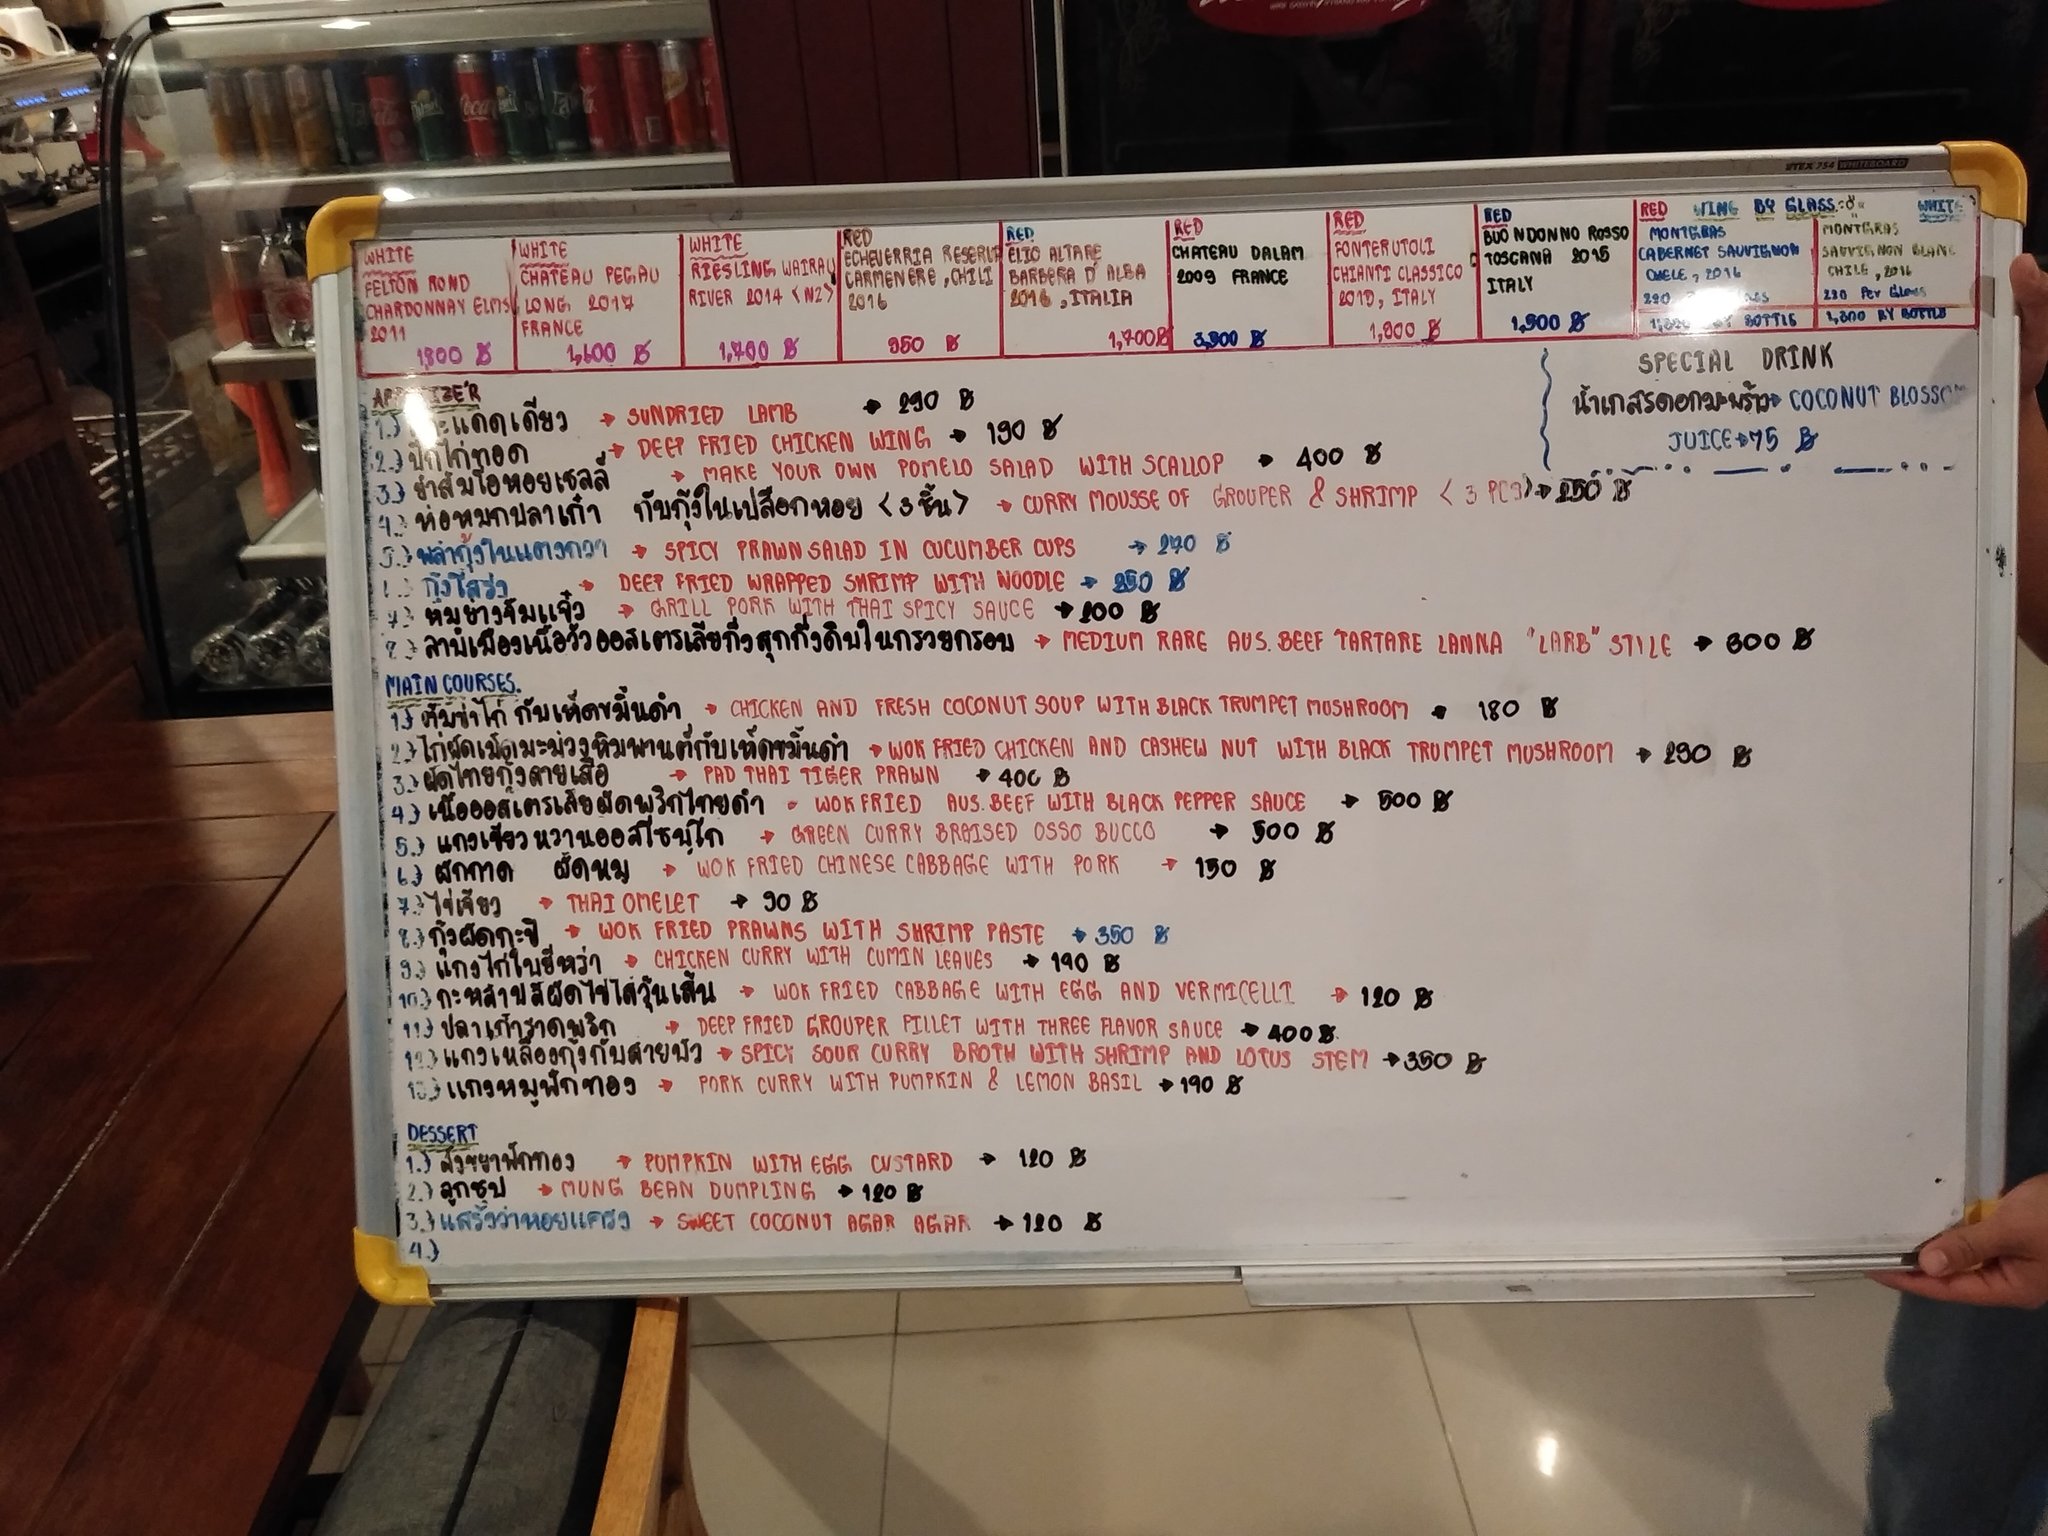 UTEX 754 WHITEBOARD
WHITE
FELTON ROAD
CHARDONNAY ELMS
2011
1,800 ฿
WHITE
CHATEAU PEGAU
LONG, 2017
FRANCE
1,600 ฿
WHITE
RIESLING WAIRAU
RIVER 2014 <NZ>
1,700 ฿
RED
ECHEVERRIA RESERVA
CARMENERE, CHILI
2016
950 ฿
RED
ELIO ALTARE
BARBERA D'ALBA
2016, ITALIA
1,700฿
RED
CHATEAU DALAM
2009 FRANCE
3,900 ฿
RED
FONTERUTOLI
CHIANTI CLASSICO
ITALY
1,800 ฿
RED
BUONDONNO ROSSO
TOSCANA 2015
ITALY
1,900 ฿
RED WINE BY GLASS WHITE
MONTGRAS
CABERNET SAUVIGNON
2016
BY BOTTLE
MONTGRAS
SAUVIGNON BLANC
CHILE, 2016
230 Per Glass
BY BOTTLE
SPECIAL DRINK
น้ำเกสรดอกมะพร้าว → COCONUT BLOSSOM
JUICE → 75 ฿
APPETIZER
1.) แดดเดียว → SUNDRIED LAMB → 290 ฿
2.) ปีกไก่ทอด → DEEP FRIED CHICKEN WING → 190 ฿
3.) ยำส้มโอหอยเชลล์ → MAKE YOUR OWN POMELO SALAD WITH SCALLOP → 400 ฿
4.) ห่อหมกปลาเก๋า กับกุ้งในเปลือกหอย <3 ชิ้น> → CURRY MOUSSE OF GROUPER & SHRIMP <3 PCS> → 250 ฿
5.) พล่ากุ้งในแตงกวา → SPICY PRAWN SALAD IN CUCUMBER CUPS → 270 ฿
กุ้งโสร่ง → DEEP FRIED WRAPPED SHRIMP WITH NOODLE → 250 ฿
7.) หมูย่างจิ้มแจ่ว → GRILL PORK WITH THAI SPICY SAUCE → 200 ฿
8.) ลาบเมืองเนื้อวัวออสเตรเลียกึ่งสุกกึ่งดิบในกรวยกรอบ → MEDIUM RARE AUS. BEEF TARTARE LANNA "LARB" STYLE → 300 ฿
MAIN COURSES.
1.) ต้มข่าไก่ กับเห็ดขมิ้นดำ → CHICKEN AND FRESH COCONUT SOUP WITH BLACK TRUMPET MUSHROOM → 180 ฿
2.) ไก่ผัดเม็ดมะม่วงหิมพานต์กับเห็ดขมิ้นดำ → WOK FRIED CHICKEN AND CASHEW NUT WITH BLACK TRUMPET MUSHROOM → 290 ฿
3.) ผัดไทยกุ้งลายเสือ → PAD THAI TIGER PRAWN → 400 ฿
4.) เนื้อออสเตรเลียผัดพริกไทยดำ → WOK FRIED AUS. BEEF WITH BLACK PEPPER SAUCE → 500 ฿
5.) แกงเขียวหวานออสโซบุโก → GREEN CURRY BRAISED OSSO BUCCO → 500 ฿
6.) ผักกาด ผัดหมู → WOK FRIED CHINESE CABBAGE WITH PORK → 150 ฿
7.) ไข่เจียว → THAI OMELET → 90 ฿
8.) กุ้งผัดกะปิ → WOK FRIED PRAWNS WITH SHRIMP PASTE → 350 ฿
9.) แกงไก่ใบยี่หร่า → CHICKEN CURRY WITH CUMIN LEAVES → 190 ฿
10.) กะหล่ำปลีผัดไข่ใส่วุ้นเส้น → WOK FRIED CABBAGE WITH EGG AND VERMICELLI → 120 ฿
11.) ปลาเก๋าราดพริก → DEEP FRIED GROUPER FILLET WITH THREE FLAVOR SAUCE → 400฿
12.) แกงเหลืองกุ้งกับสายบัว → SPICY SOUR CURRY BROTH WITH SHRIMP AND LOTUS STEM → 350 ฿
13.) แกงหมูฟักทอง → PORK CURRY WITH PUMPKIN & LEMON BASIL → 190 ฿
DESSERT
1.) สังขยาฟักทอง → PUMPKIN WITH EGG CUSTARD → 120 ฿
2.) ลูกชุบ → MUNG BEAN DUMPLING → 120 ฿
3.) แสร้งว่าหอยแครง → SWEET COCONUT AGAR AGAR → 120 ฿
4.)